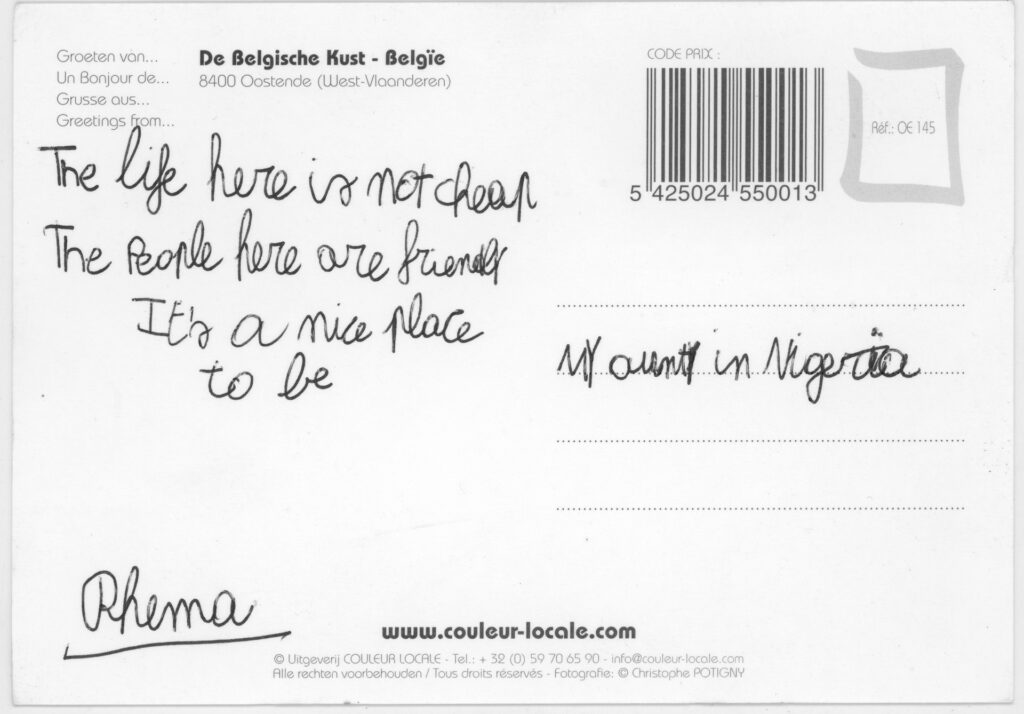 Groeten van...
Un Bonjour de...
Grusse aus...
Greetings from...
De Belgische Kust - Belgïe
8400 Oostende (West-Vlaanderen)
The life here is not cheap
The People here are friendly
It's a nice place
to be
Rhema
CODE PRIX :
5 425024 550013
Réf.: OE 145
My aunty in Nigeria
www.couleur-locale.com
© Uitgeverij COULEUR LOCALE - Tel.: + 32 (0) 59 70 65 90 - info@couleur-locale.com
Alle rechten voorbehouden / Tous droits réservés - Fotografie: © Christophe POTIGNY